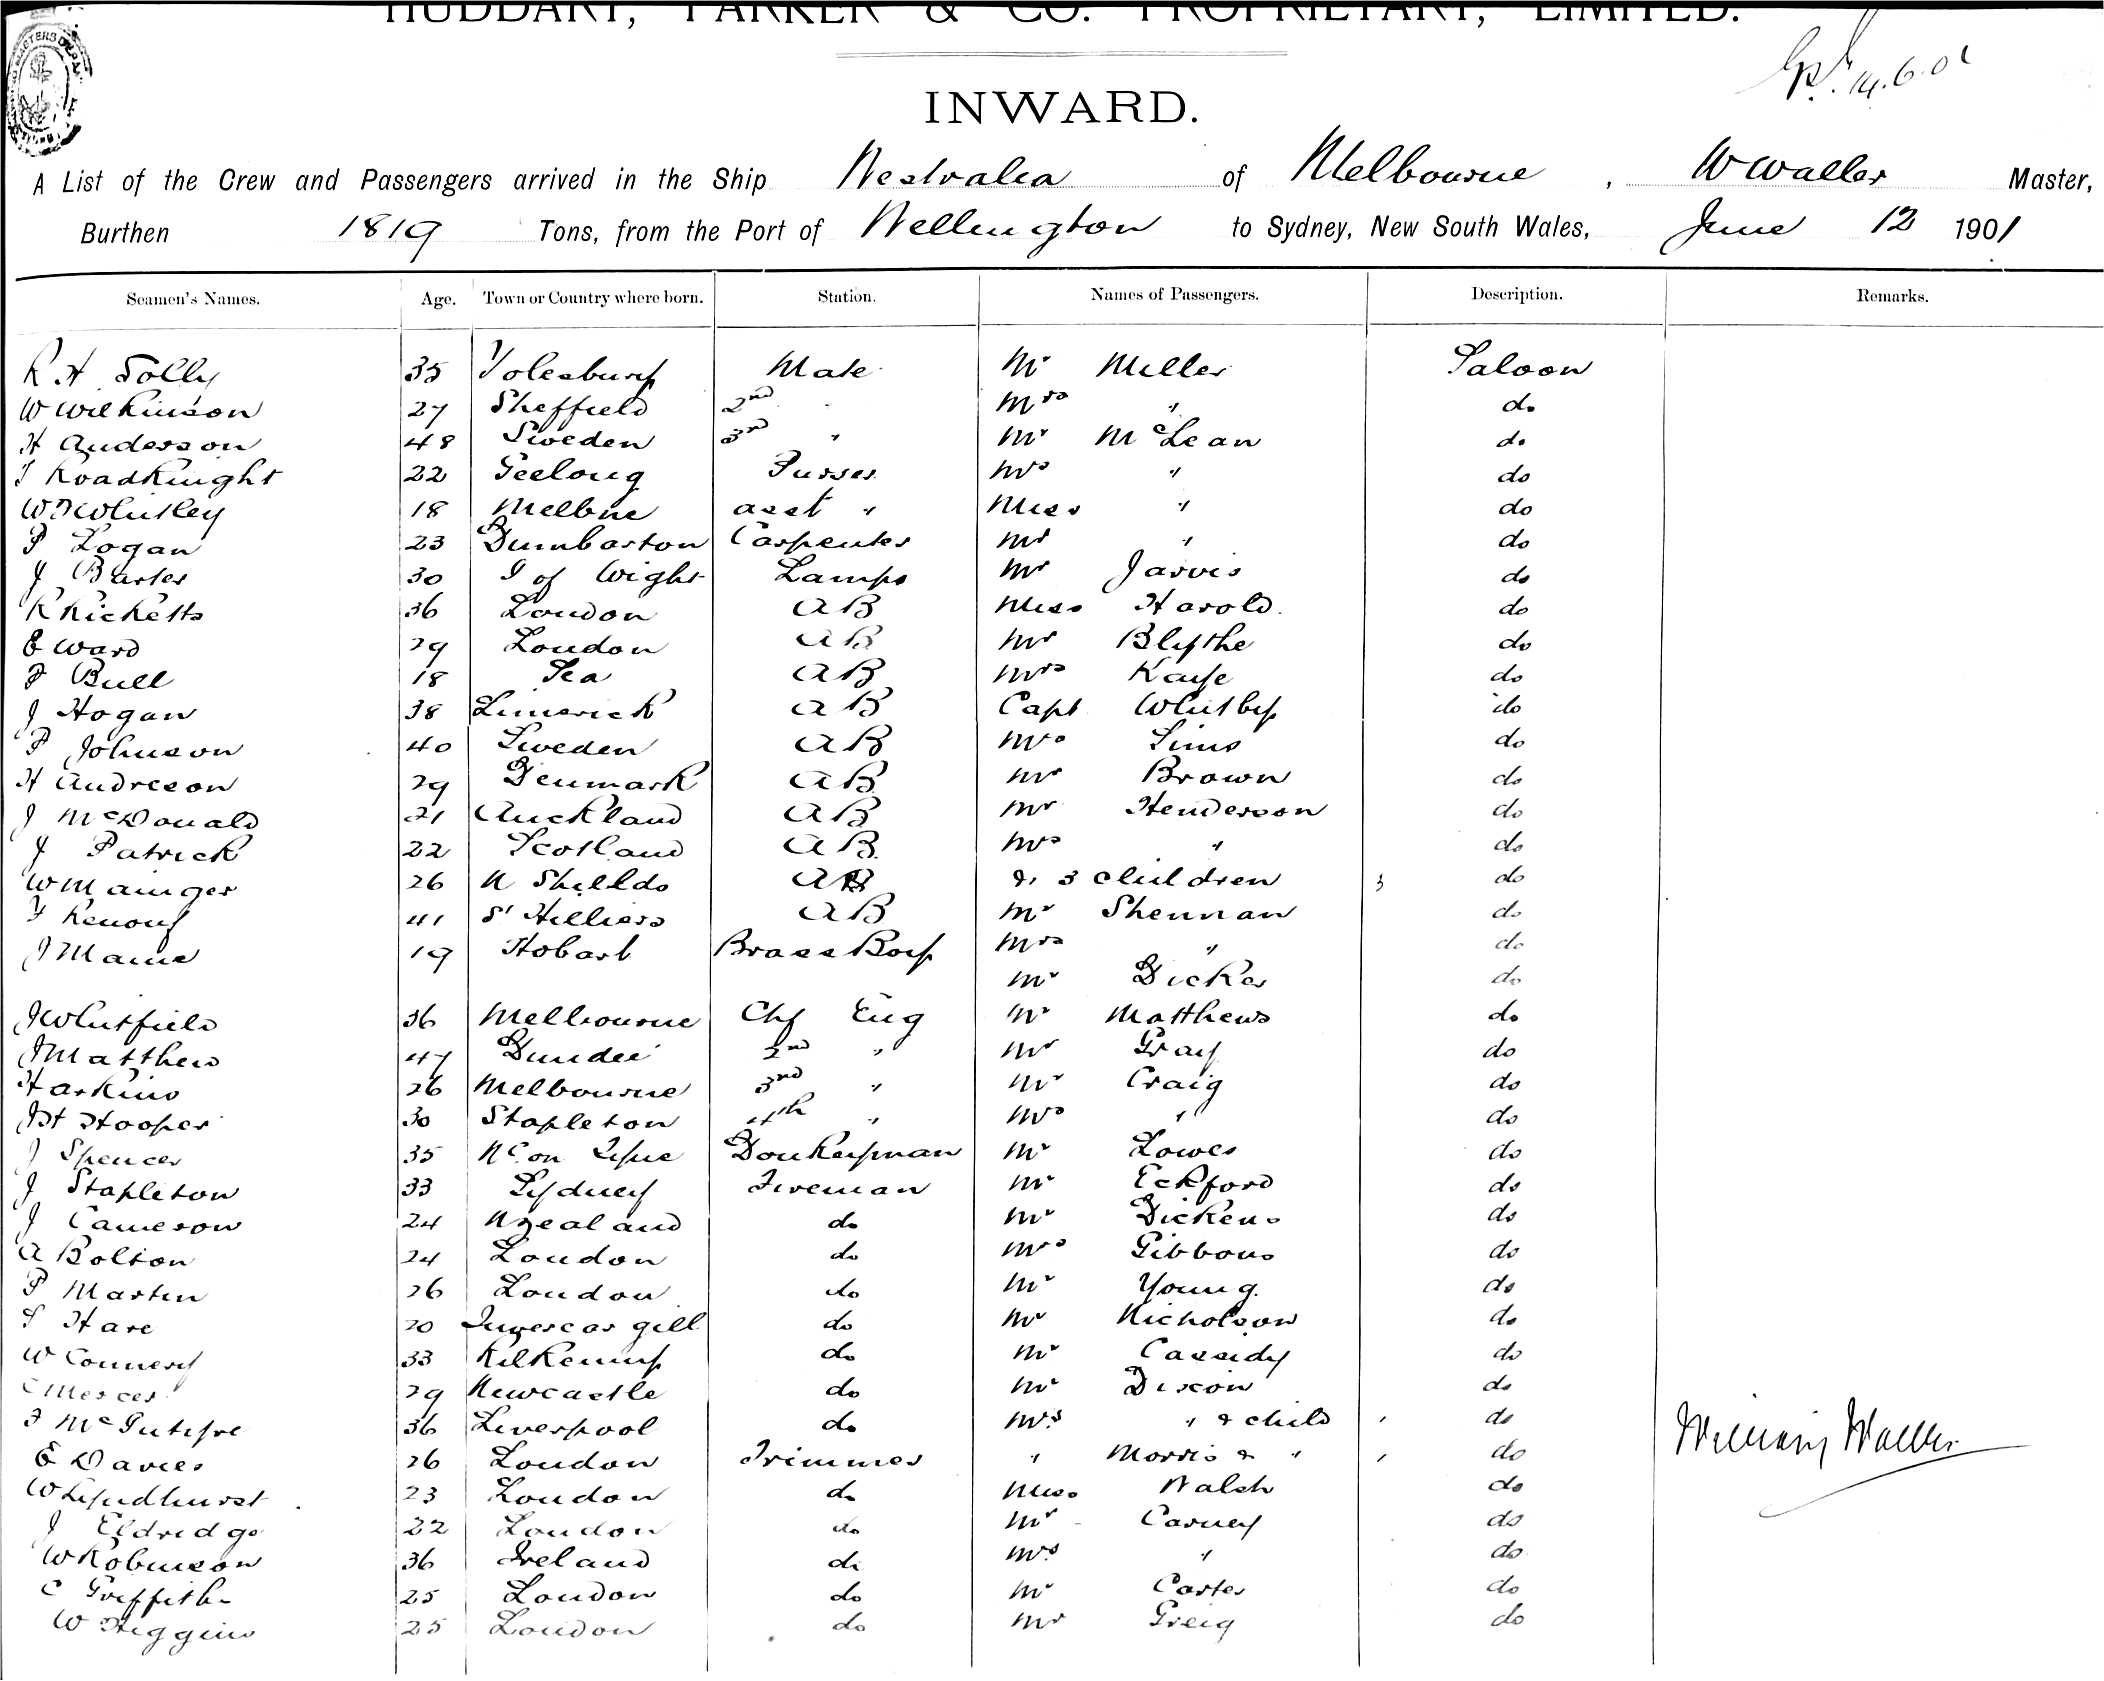 HUDDART, PARKER & CO. PROPRIETARY, LIMITED.
14.6.01
INWARD.
A List of the Crew and Passengers arrived in the Ship Westralia of Melbourne, W Waller Master,
Burthen 1819 Tons, from the Port of Wellington to Sydney, New South Wales, June 12 1901
Seamen's Names. Age. Town or Country where born. Station. Names of Passengers. Description. Remarks.
R H Solly 35 Tolesbury Mate Mr Miller Saloon
W Wilkinson 27 Sheffield 2nd " Mrs " do
H Anderson 48 Sweden 3rd " Mr McLean do
T Roadknight 22 Geelong Purser Mrs " do
W T Whitley 18 Melbne asst " Miss " do
P Logan 23 Dumbarton Carpenter Mr " do
J Barter 30 I of Wight Lamps Mr Jarvis do
R Ricketts 36 London AB Miss Harold. do
E Ward 29 London AB Mr Blythe do
F Bull 18 Sea AB Mrs Kaye do
J Hogan 38 Limerick AB Capt Whitby do
P Johnson 40 Sweden AB Mrs Sims do
H Andreson 29 Denmark AB Mr Brown do
J McDonald 21 Auckland AB Mr Henderson do
J Patrick 22 Scotland AB Mrs " do
W Mainger 26 N Shields AB & 3 children 3 do
F Renouf 41 St Helliers AB Mr Shennan do
J Maine 19 Hobart Brass Boy Mrs " do
Mr Dicker do
J Whitfield 36 Melbourne Chf Eng Mr Matthews do
J Matthew 47 Dundee 2nd " Mr Gray do
Harkins 26 Melbourne 3rd " Mr Craig do
J H Hooper 30 Stapleton 4th " Mrs " do
J Spencer 35 NC on Tyne Donkeyman Mr Lowes do
J Stapleton 33 Sydney Fireman Mr Eckford do
J Cameron 24 N Zealand do Mr Dickens do
A Bolton 24 London do Mrs Gibbons do
P Martin 26 London do Mr Young. do
S Hare 20 Invercargill do Mr Nicholson do
W Connery 33 Kilkenny do Mr Cassidy do
C Mercer 29 Newcastle do Mr Dixon do
F McIntyre 36 Liverpool do Mrs " & child 1 do
E Davies 26 London Trimmer " Morris & " 1 do
W Lyndhurst 23 London do Miss Walsh do
J Eldridge 22 London do Mr Carney do
W Robinson 36 Ireland do Mrs " do
C Griffiths 25 London do Mr Carter do
W Higgins 25 London do Mr Greig do
William Waller